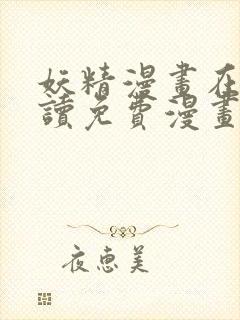 妖精漫畫在
讀免費漫畫
夜恵美